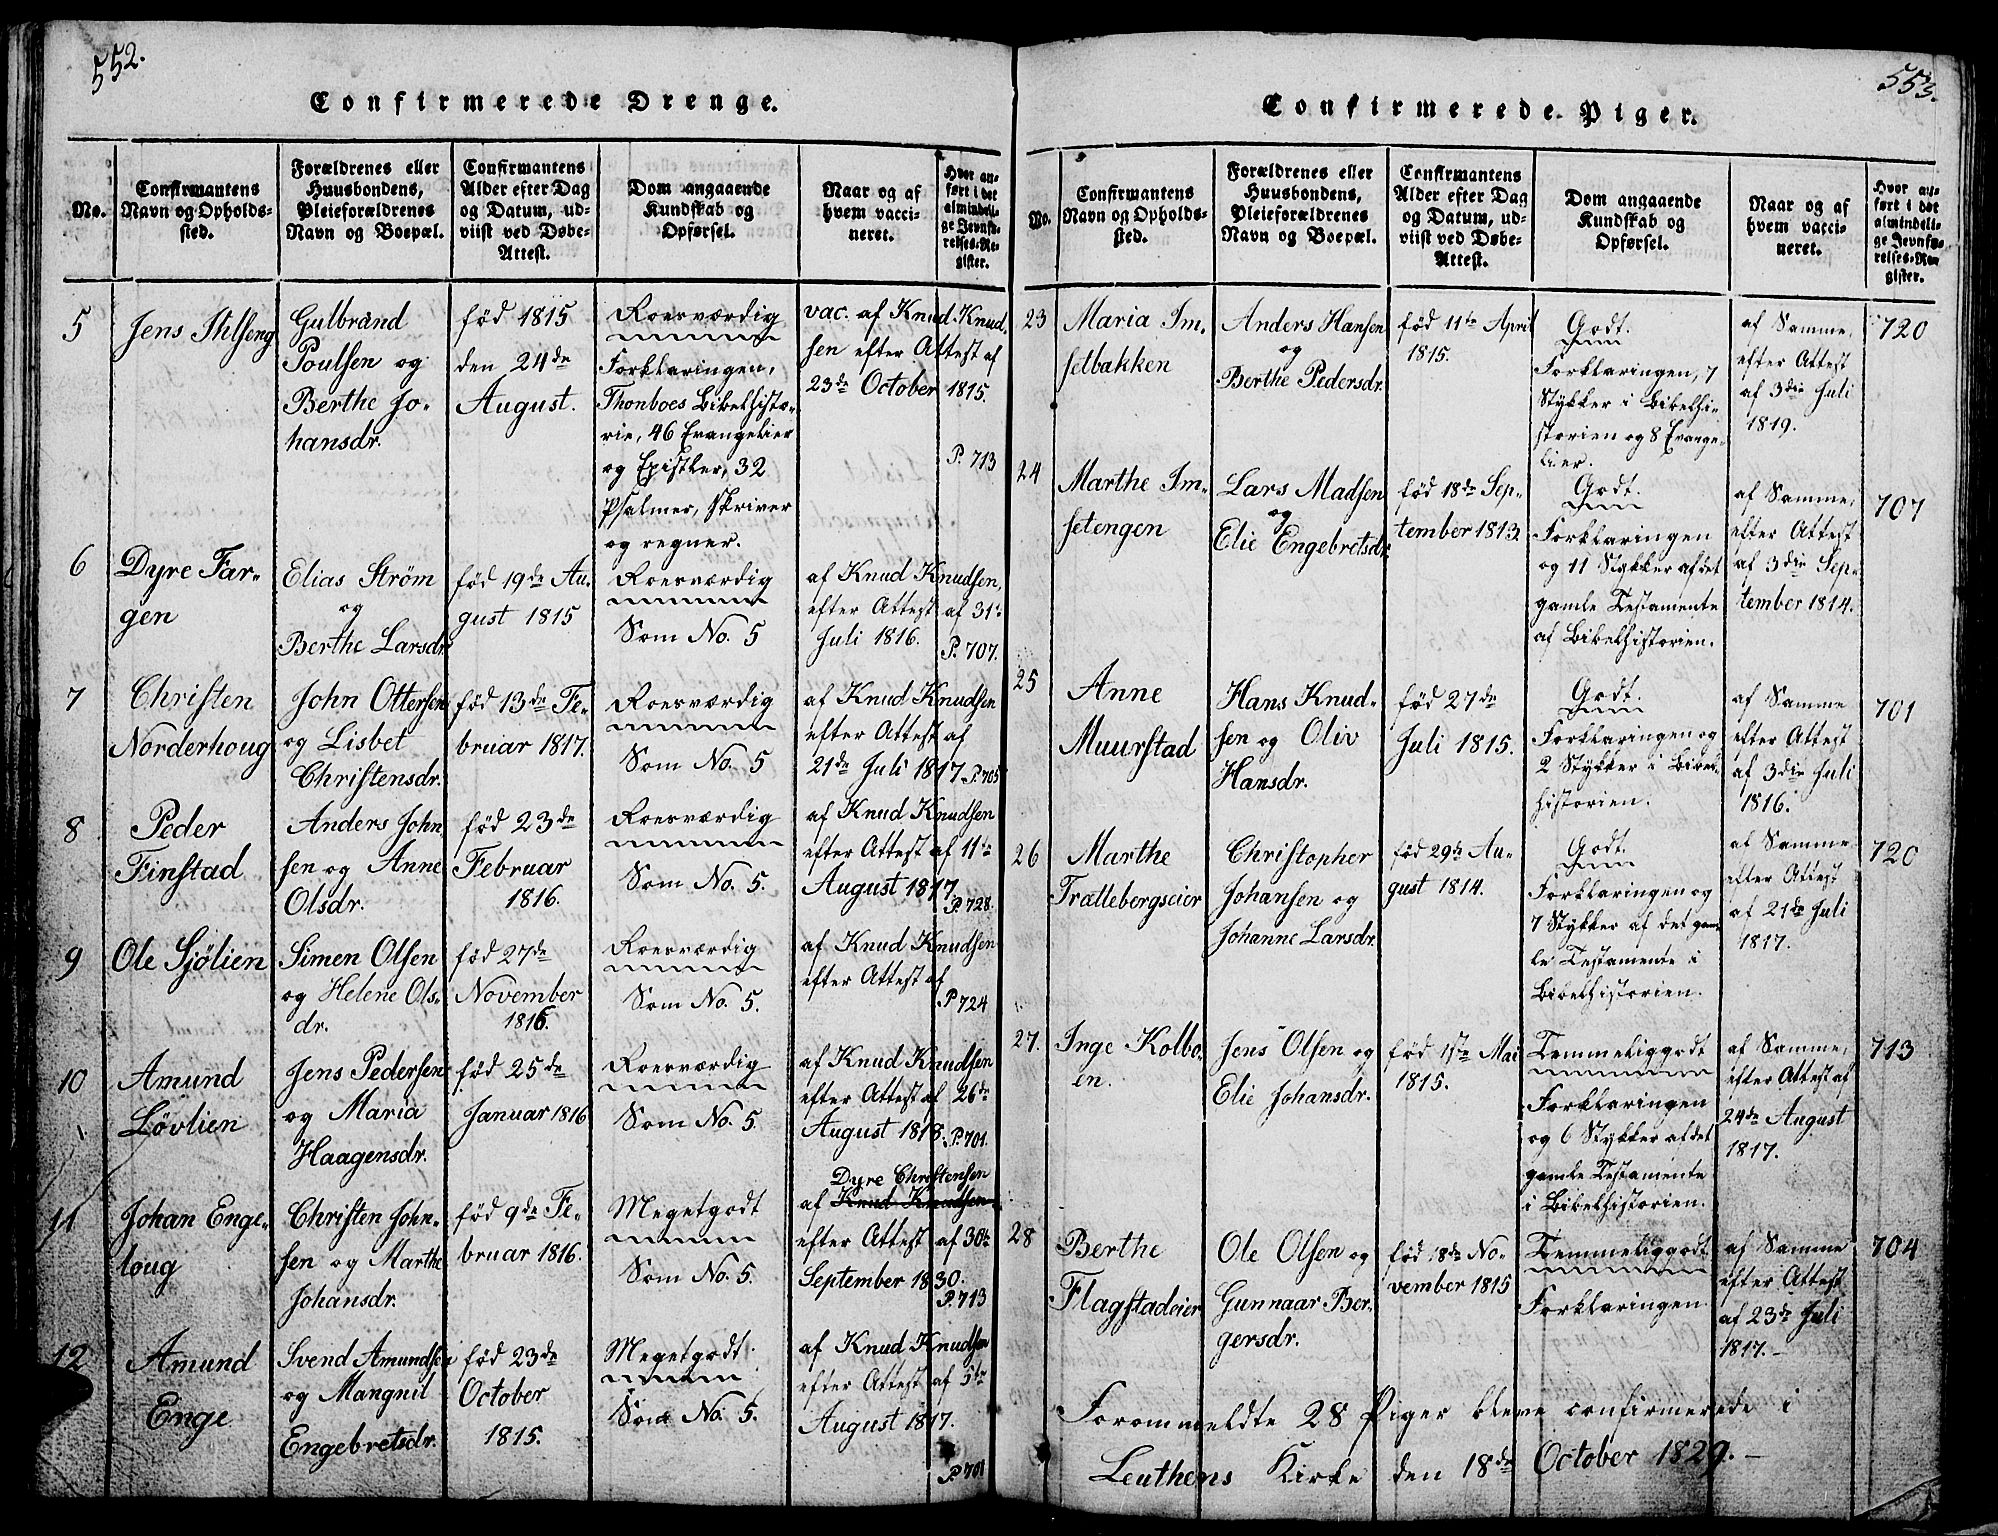 552.
Confirmerede Drenge.
No.
Confirmantens
Navn og Opholds-
sted.
Forældrenes eller
Huusbondens,
Pleieforældrenes
Navn og Boepæl.
Confirmantens
Alder efter Dag
og Datum, ud-
viist ved Døbe-
Attest.
Dom angaaende
Kundskab og
Opførsel.
Naar og af
hvem vacci-
neret.
Hvor an-
ført i det
almindeli-
ge Jevnfø-
relses-Re-
gister.
5
Jens Stilseng
Gulbrand
Poulsen og
Berthe Jo-
hansdr.
fød 1815
den 24de
August.
Roesværdig
Forklaringen,
Thonboes Bibelhisto-
rie, 46 Evangelier
og Epistler, 32
Psalmer, skriver
og regner.
vac. af Knud Knud-
sen efter Attest af
23de October 1815.
P. 713
6
Dyre Far-
gen
Elias Ström
og
Berthe Larsdr.
fød 19de Au-
gust 1815
Roesværdig
Som No. 5
af Knud Knudsen,
efter Attest af 31te
Juli 1816.
P. 707.
7
Christen
Norderhoug
John Ottersen
og Lisbet
Christensdr.
fød 13de Fe-
bruar 1817.
Roesværdig
Som No. 5
af Knud Knudsen
efter Attest af
21de Juli 1817
P. 705
8
Peder
Finstad
Anders John-
sen og Anne
Olsdr.
fød 23de
Februar
1816.
Roesværdig
Som No. 5.
af Knud Knudsen
efter Attest af 11te
August 1817
P. 728.
9
Ole Sjölien
Simen Olsen
og Helene Ols-
dr.
fød 27de
November
1816.
Roesværdig
Som No. 5.
af Knud Knudsen
efter Attest af
P. 724
10
Amund
Lövlien
Jens Pedersen
og Maria
Haagensdr.
fød 25de
Januar 1816
Roesværdig
Som No. 5.
af Knud Knudsen
efter Attest af 26de
August 1818.
P. 701.
11
Johan Enge-
loug
Christen John-
sen og Marthe
Johansdr.
fød 9de Fe-
bruar 1816.
Megetgodt
Som No. 5.
Dyre Christensen
af Knud Knudsen
efter Attest af 30te
September 1830.
P. 713
12
Amund
Enge
Svend Amundsen
og Mangnil
Engebretsdr.
fød 23de
October
1815.
Megetgodt
Som No. 5.
af Knud Knudsen
efter Attest af 5te
August 1817.
P. 701
553.
Confirmerede Piger.
No.
Confirmantens
Navn og Opholds-
sted.
Forældrenes eller
Huusbondens,
Pleieforældrenes
Navn og Boepæl.
Confirmantens
Alder efter Dag
og Datum, ud-
viist ved Døbe-
Attest.
Dom angaaende
Kundskab og
Opførsel.
Naar og af
hvem vacci-
neret.
Hvor an-
ført i det
almindeli-
ge Jevnfø-
relses-Re-
gister.
23
Maria Im-
setbakken
Anders Hansen
og
Berthe Pedersdr.
fød 11te April
1815.
Godt.
Forklaringen, 7
Stykker i Bibelhi-
storien og 8 Evange-
lier.
af Samme,
efter Attest
af 3die Juli
1819.
720
24
Marthe Im-
setengen
Lars Madsen
og
Elie Engebretsdr.
fød 18de Sep-
tember 1813.
Godt.
Forklaringen
og 11 Stykker af det
gamle Testamente
af Bibelhistorien.
af Samme,
efter Attest
af 3die Sep-
tember 1814.
707
25
Anne
Muurstad
Hans Knud-
sen og Oliv
Hansdr.
fød 27de
Juli 1815.
Godt.
Forklaringen og
2 Stykker i Bibel-
historien.
af Samme
efter Attest
af 3die Juli
1816.
701
26
Marthe
Trættebergseier
Christopher
Johansen og
Johanne Larsdr.
fød 29de Au-
gust 1814.
Godt.
Forklaringen og
7 Stykker af det gam-
le Testamente i
Bibelhistorien.
af Samme
efter Attest
af 21de Juli
1817.
720
27.
Inge Kolbo-
en.
Jens Olsen og
Elie Johansdr.
fød 1ste Mai
1815.
Temmeliggodt
Forklaringen
og 6 Stykker af det
gamle Testamente
i Bibelhistorien.
af Samme,
efter Attest af
24de August
1817.
713
28
Berthe
Flagstadeier
Ole Olsen og
Gunnaar Ber-
gersdr.
fød 18de No-
vember 1815
Temmeliggodt
Forklaringen
af Samme
efter Attest
af 23de Juli
1817.-
704
Forommeldte 28 Piger bleve confirmerede i
Leuthens Kirke den 18de October 1829.-